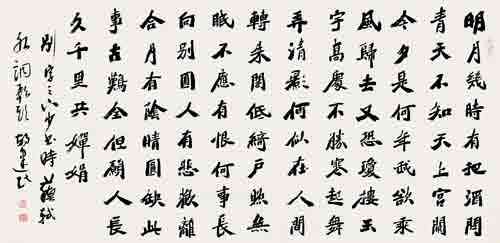 明月幾時有把酒問
青天不知天上宮闕
今夕是何年我欲乘
風歸去又恐瓊樓玉
宇高處不勝寒起舞
弄清影何似在人間
轉朱閣低綺戶照無
眠不應有恨何事長
向別圓人有悲歡離
合月有陰晴圓缺此
事古難全但願人長
久千里共嬋娟
別字下少書時蘇軾
水調歌頭